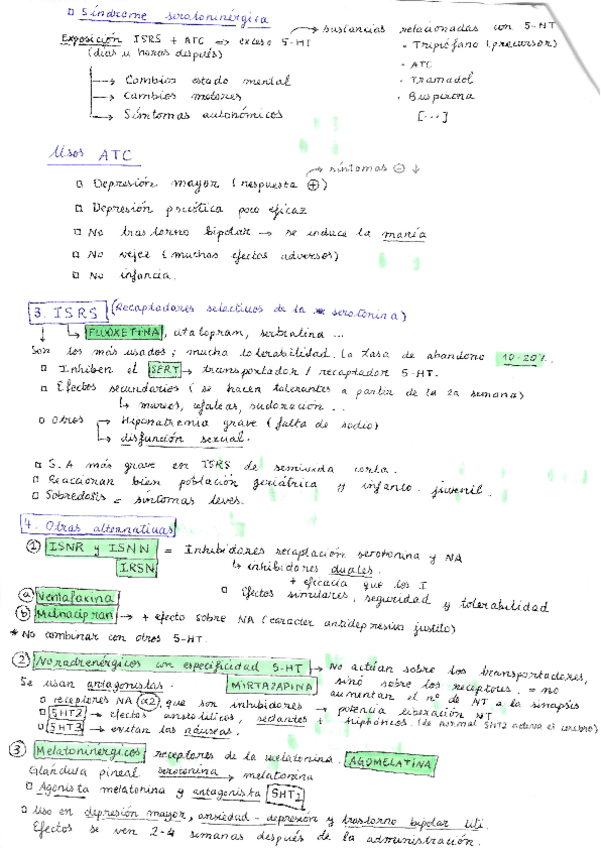 □ Síndrome serotoninérgica
Exposición ISRS + ATC => exceso 5-HT → sustancias relacionadas con 5-HT
(días u horas después)
· Triptófano (precursor)
· ATC
→ Cambios estado mental · Tramadol
→ Cambios motores · Buspirona
→ Síntomas autonómicos [...]
Usos ATC
→ síntomas ⊖ ↓
□ Depresión mayor (respuesta ⊕)
□ Depresión psicótica poco eficaz
□ No trastorno bipolar → se induce la manía
□ No vejez (muchos efectos adversos)
□ No infancia.
3. ISRS (Recaptadores selectivos de la serotonina)
↳ FLUOXETINA, citalopram, sertralina ...
Son los más usados; mucha tolerabilidad. La tasa de abandono 10-20%.
□ Inhiben el SERT → transportador / recaptador 5-HT.
□ Efectos secundarios (se hacen tolerantes a partir de la 2a semana)
↳ mareos, cefaleas, sudoración ..
□ Otros → Hiponatremia grave (falta de sodio)
↳ disfunción sexual.
□ S.A más grave en ISRS de semivida corta.
□ Reaccionan bien población geriátrica y infanto-juvenil.
□ Sobredosis = síntomas leves.
4. Otras alternativas
① ISNR y ISNN = Inhibidores recaptación serotonina y NA
IRSN ↳ inhibidores duales.
+ eficacia que los I
ⓐ Venlafaxina □ Efectos similares, seguridad y tolerabilidad
ⓑ Milnacipran → + efecto sobre NA (carácter antidepresivo justito)
* No combinar con otros 5-HT.
② Noradrenérgicos con especificidad 5-HT → No actúan sobre los transportadores,
Se usan antagonistas. MIRTAZAPINA sino sobre los receptores. = no
aumentan el nº de NT a la sinapsis
□ receptores NA (α2) que son inhibidores → potencia liberación NT
□ 5HT2 → efectos ansiolíticos, sedantes i hipnóticos. (de normal 5HT2 activa el cerebro)
□ 5HT3 → evitan las náuseas.
③ Melatoninérgicos receptores de la melatonina. AGOMELATINA
Glándula pineal serotonina → melatonina
□ Agonista melatonina y antagonista 5HT2
□ Uso en depresión mayor, ansiedad-depresión y trastorno bipolar
Efectos se ven 2-4 semanas después de la administración.